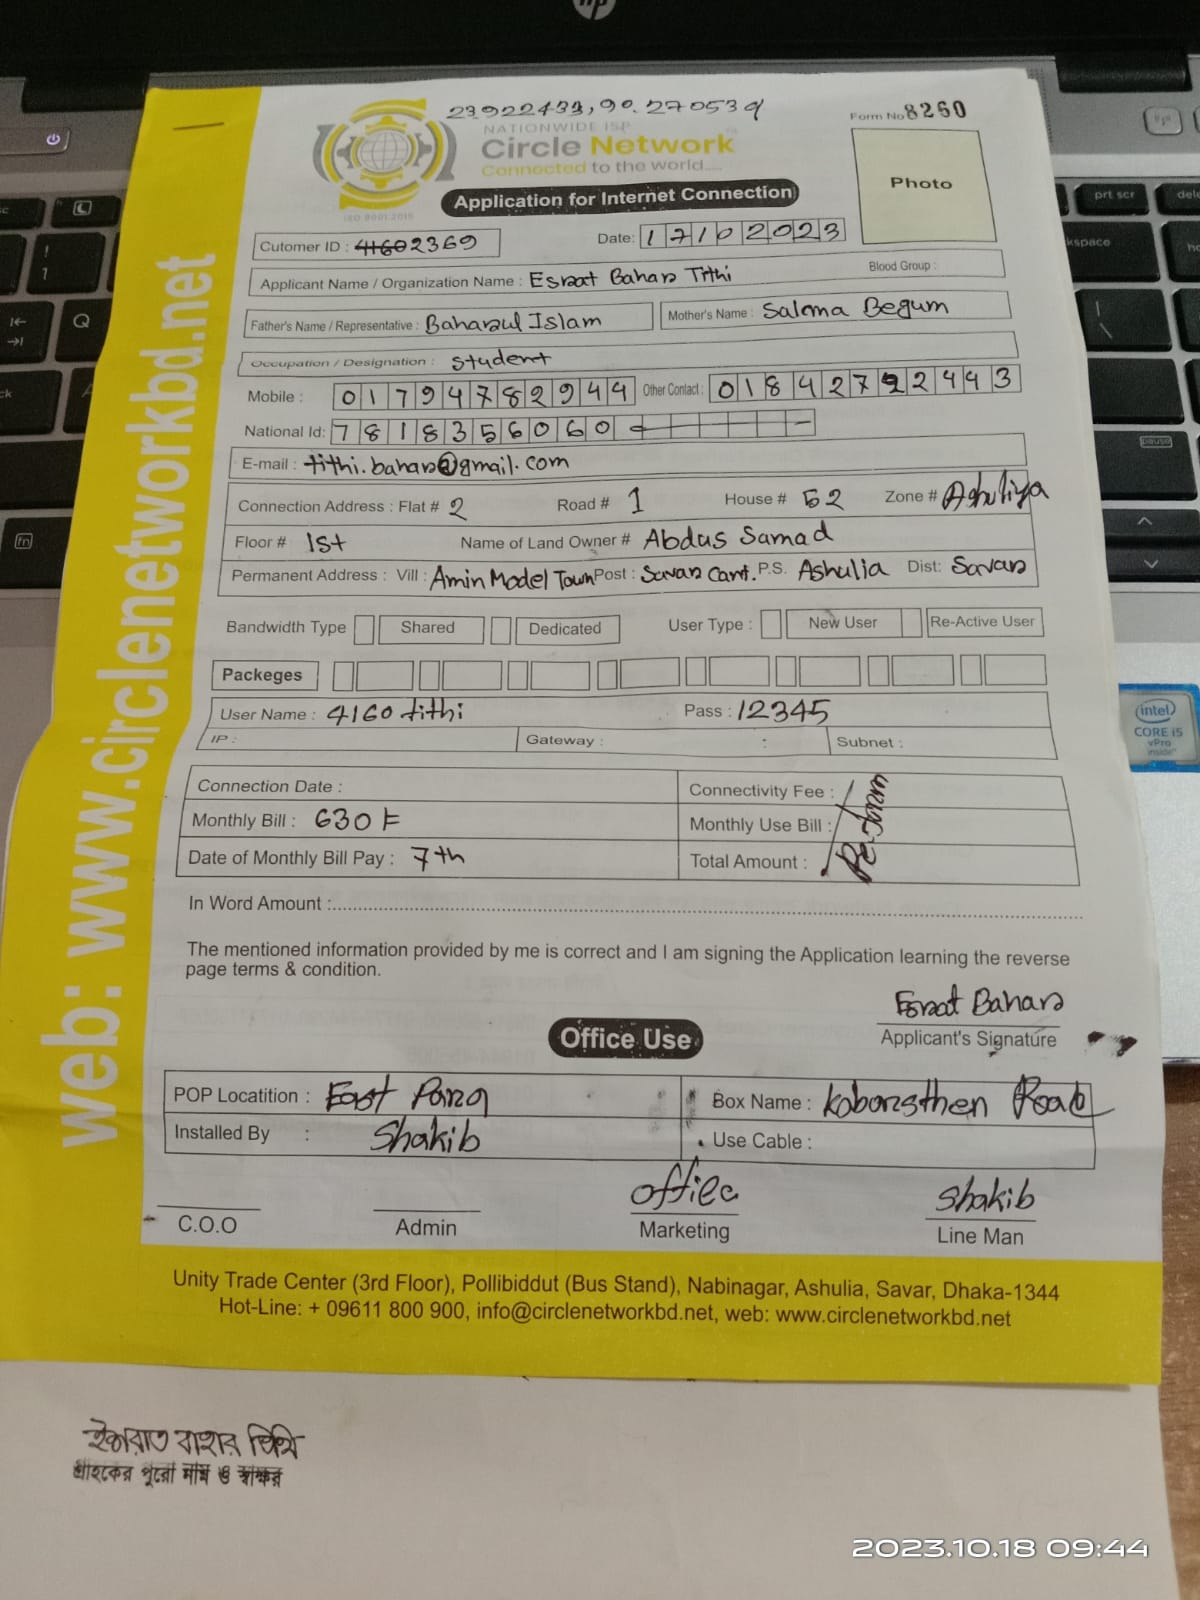 23.922433, 90.270539
Form No 8260
NATIONWIDE ISP
Circle Network
Connected to the world.....
ISO 9001:2015
Application for Internet Connection
Photo
Cutomer ID : 41602369
Date: 17102023
Applicant Name / Organization Name : Esrat Bahar Tithi
Blood Group :
Father's Name / Representative : Baharul Islam
Mother's Name : Salma Begum
Occupation / Designation : Student
Mobile : 01794782944 Other Contact : 01842722443
National Id: 7818356060
E-mail : tithi.bahar@gmail.com
Connection Address : Flat # 2 Road # 1 House # 52 Zone # Ashuliya
Floor # 1st Name of Land Owner # Abdus Samad
Permanent Address : Vill : Amin Model Town Post : Savar Cant. P.S. Ashulia Dist: Savar
Bandwidth Type Shared Dedicated User Type : New User Re-Active User
Packeges
User Name : 4160tithi Pass : 12345
IP : Gateway : : Subnet :
Connection Date : Connectivity Fee :
Monthly Bill : 630 Monthly Use Bill :
Date of Monthly Bill Pay : 7th Total Amount :
In Word Amount :
The mentioned information provided by me is correct and I am signing the Application learning the reverse
page terms & condition.
Esrat Bahar
Applicant's Signature
Office Use
POP Locatition : East Para Box Name : Kobarsthen Road
Installed By : Shakib Use Cable :
C.O.O Admin office Marketing Shakib Line Man
Unity Trade Center (3rd Floor), Pollibiddut (Bus Stand), Nabinagar, Ashulia, Savar, Dhaka-1344
Hot-Line: + 09611 800 900, info@circlenetworkbd.net, web: www.circlenetworkbd.net
web: www.circlenetworkbd.net
ইশরাত বাহার তিথি
গ্রাহকের পুরো নাম ও স্বাক্ষর
prt sc
intel
CORE i5
vPro
inside
pause
fn
2023.10.18 09:44